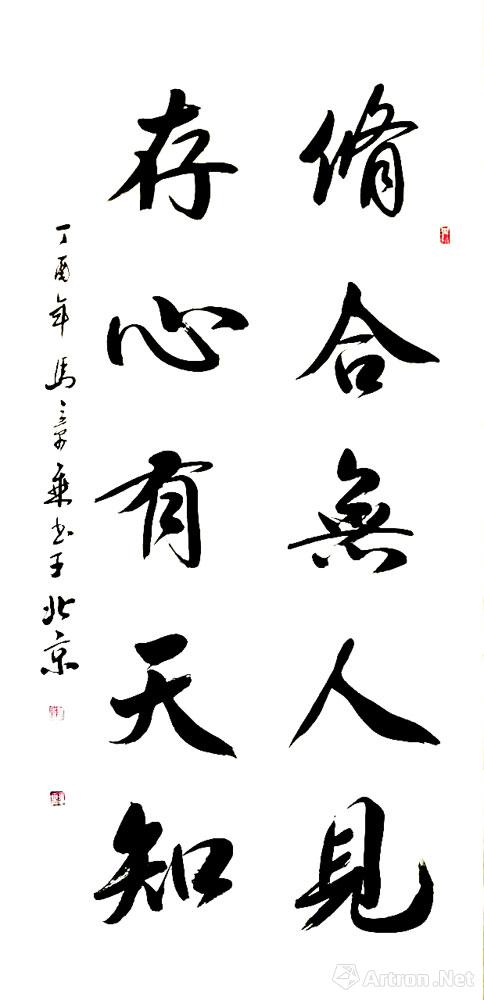 脩合無人見
存心有天知
丁酉年 馬章乘书于北京
Artron.Net